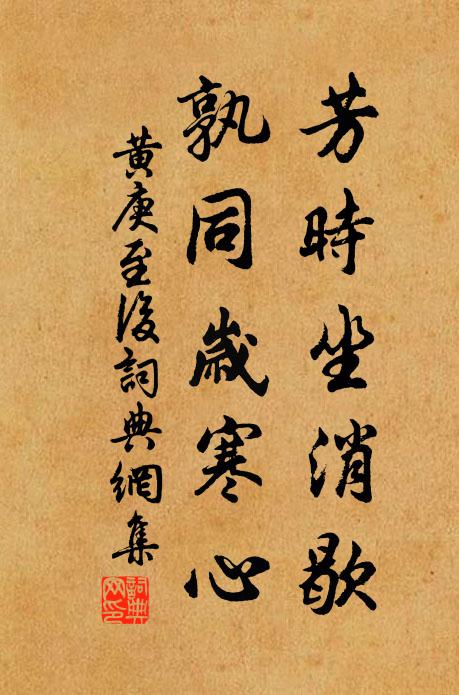 芳時坐消歇
孰同歲寒心
黄庚至後詞典網集
詞典
网印